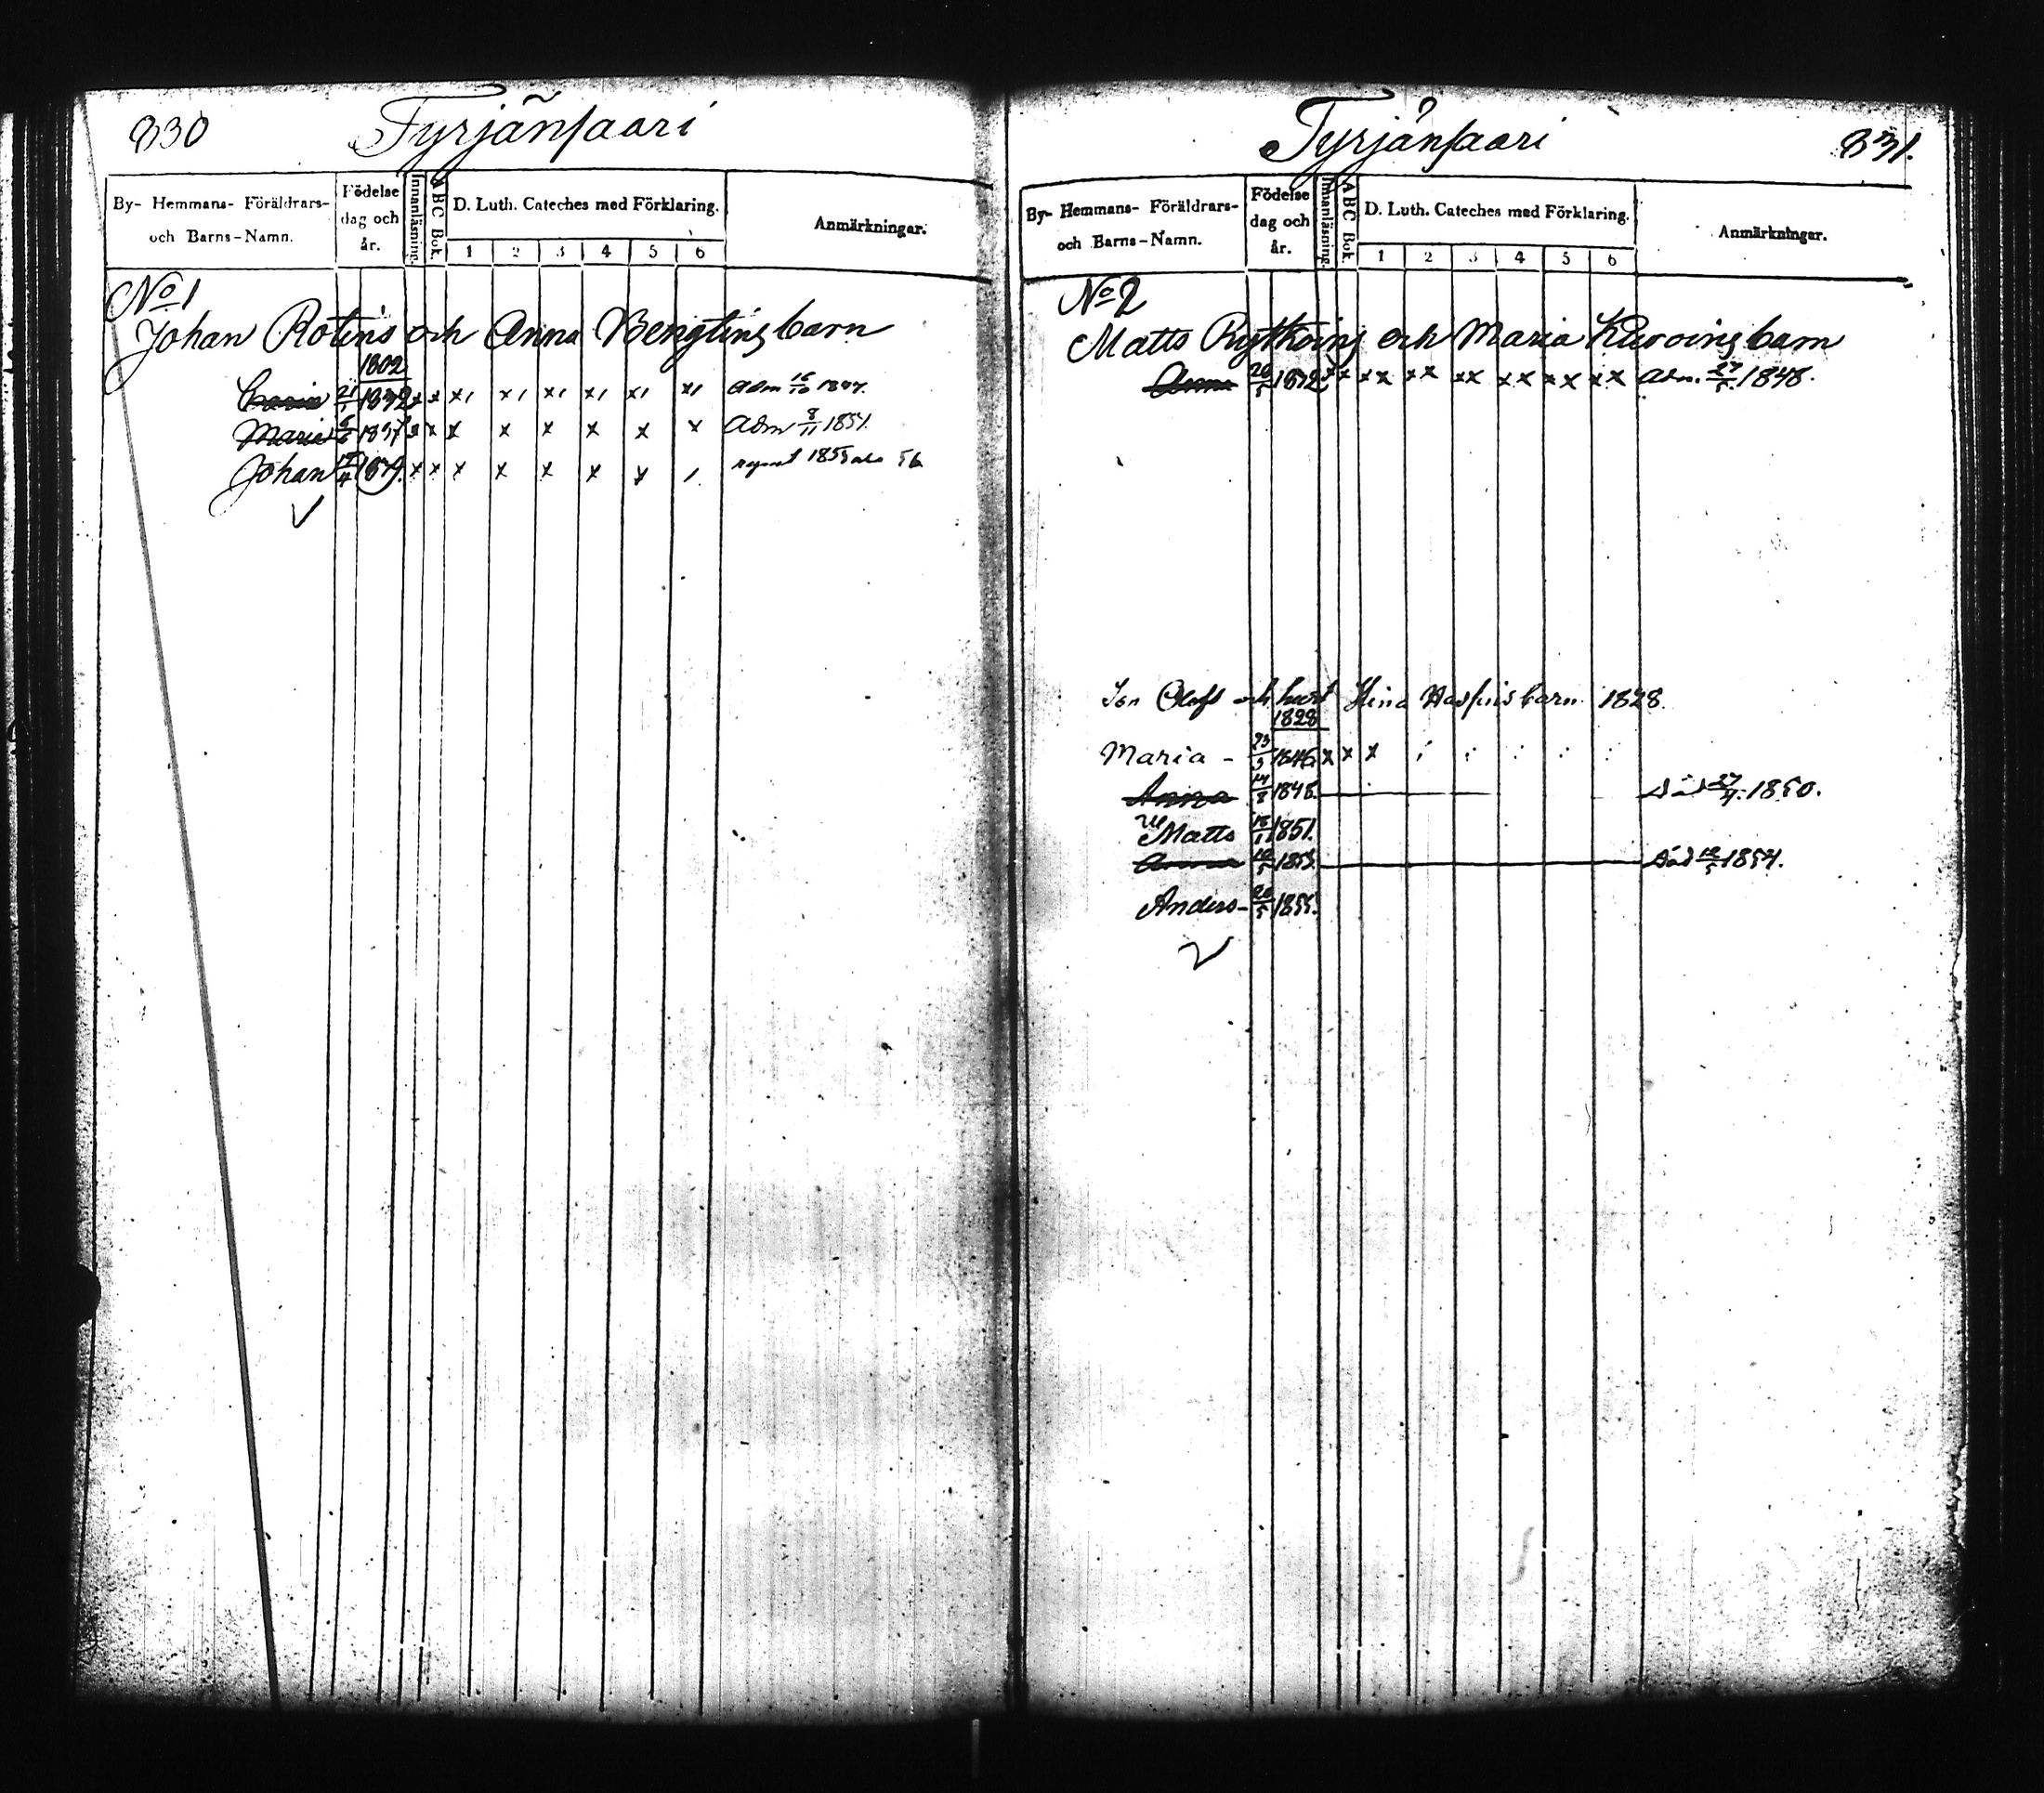 830 Tyrjänsaari
By- Hemmans- Föräldrars- och Barns-Namn.
Födelse dag och år.
Innanläsning.
ABC Bok.
D. Luth. Cateches med Förklaring.
1 2 3 4 5 6
Anmärkningar.
No 1
Johan Rotins och Anna Bengtins barn
1802
Caria 21/1 1832 x x x1 x1 x1 x1 x1 x1 adm 16/10 1847.
Maria 6/6 1837 x x x x x x x x adm 8/11 1851.
Johan 17/4 x x x x x x x 1855 56
Tyrjänsaari 831.
By- Hemmans- Föräldrars- och Barns-Namn.
Födelse dag och år.
Innanläsning.
ABC Bok.
D. Luth. Cateches med Förklaring.
1 2 3 4 5 6
Anmärkningar.
No 2
Matts Rytköins och Maria Kuroings barn
Anna 20/5 1832 x x xx xx xx xx xx xx adm. 27/5 1848.
Son Olofs och hust Stina Hasuins barn 1828.
1828
Maria - 23/3 1846 x x x
Anna 14/8 1848. död 27/4 1850.
Matts 18/1 1851.
Anna 10/5 1853. död 12/5 1854.
Anders - 20/5 1855.